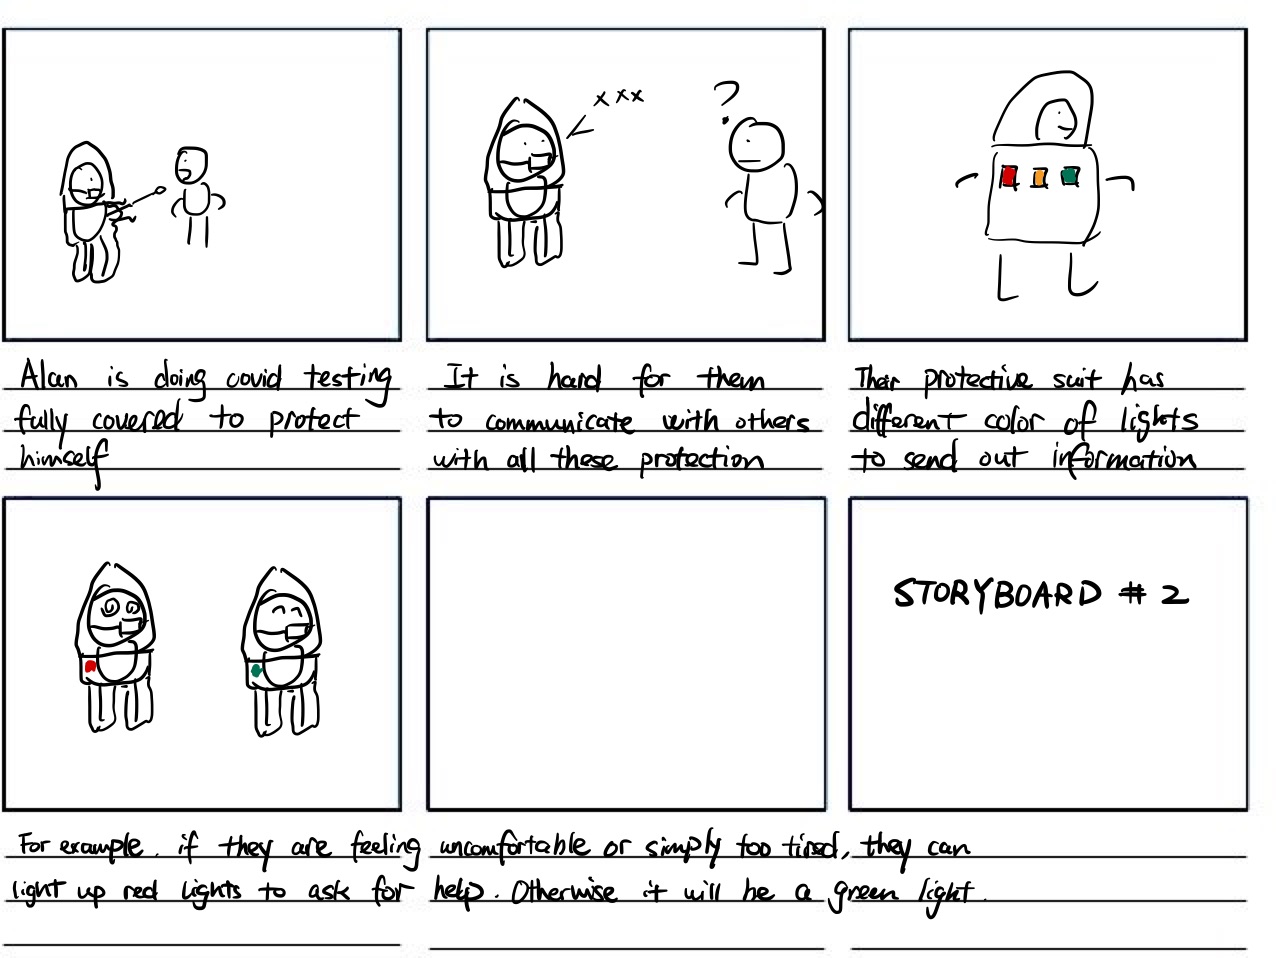 x x x
?
Alan is doing covid testing
fully covered to protect
himself
It is hard for them
to communicate with others
with all these protection
Their protective suit has
different color of lights
to send out information
STORYBOARD # 2
For example. if they are feeling uncomfortable or simply too tired, they can
light up red lights to ask for help. Otherwise it will be a green light.